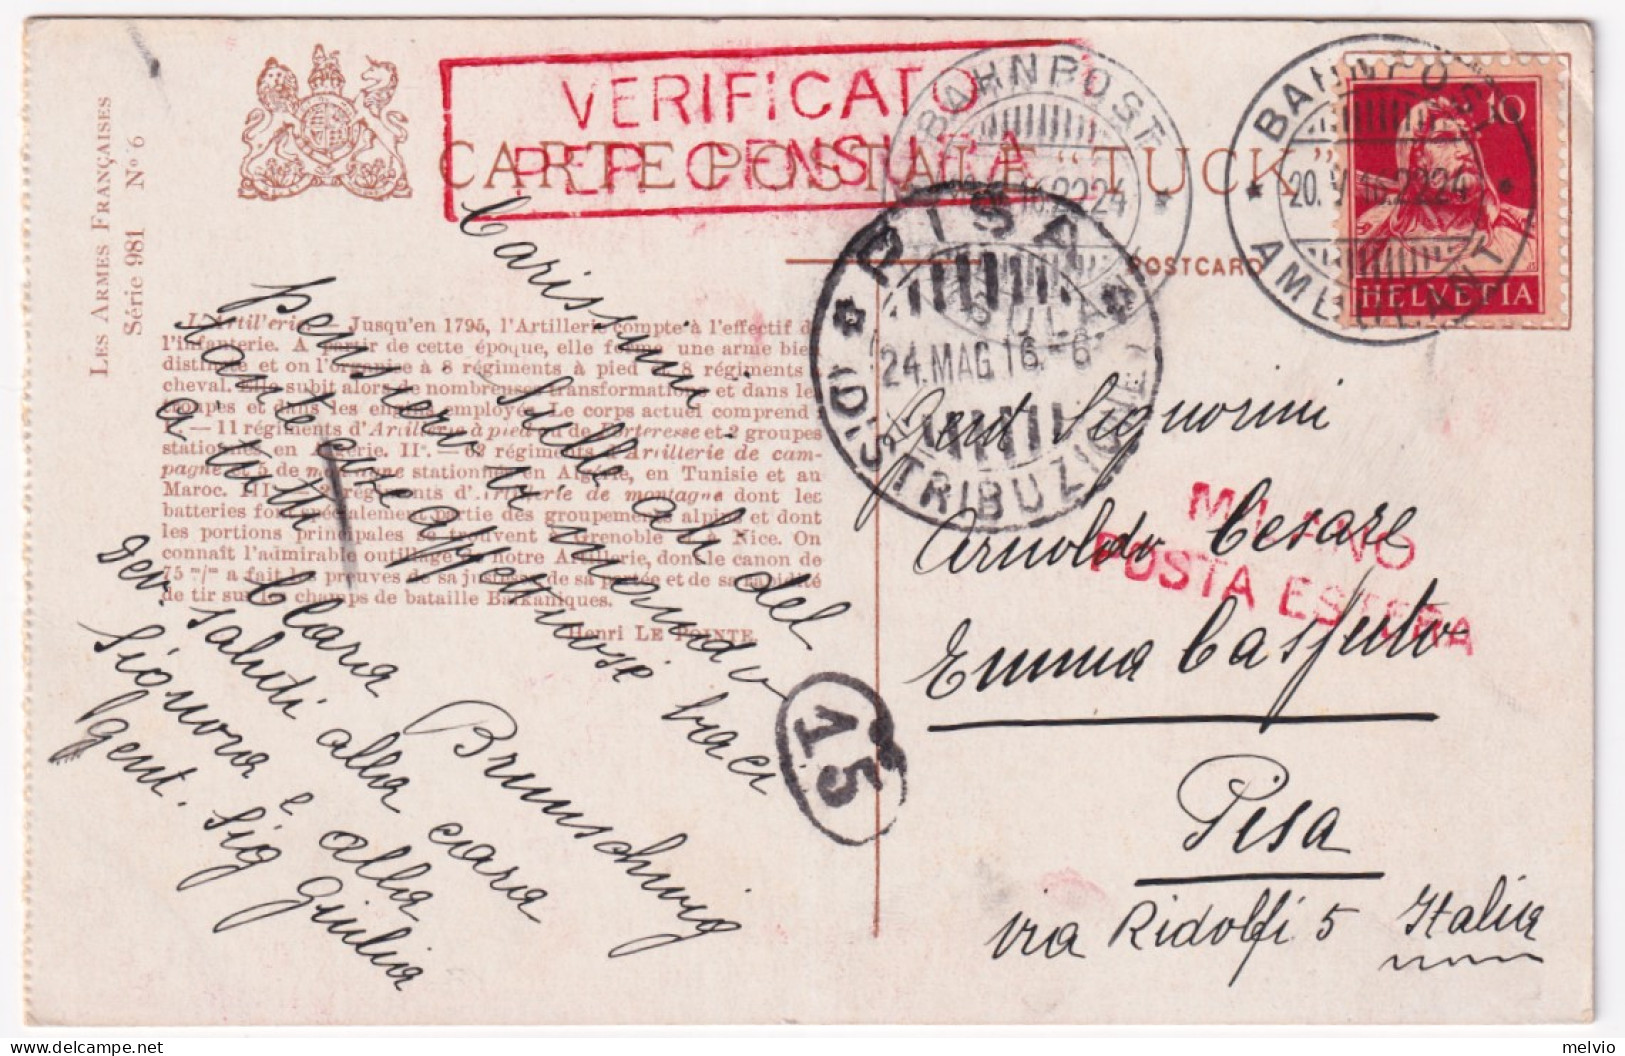 LES ARMES FRANÇAISES
Série 981 Nº 6
VERIFICATO
PER CENSURA
CARTE POSTALE “TUCK”
POSTCARD
BAHNPOST
16.2224
BAHNPOST
20.V.16.2224
AMBULANT
10
HELVETIA
PISA
24.MAG.16.-6
(DISTRIBUZIONE)
MILANO
POSTA ESTERA
15
L'Artillerie. Jusqu'en 1795, l'Artillerie compte à l'effectif de
l'infanterie. A partir de cette époque, elle forme une arme bien
distincte et on l'organise à 8 régiments à pied et 8 régiments à
cheval. Elle subit alors de nombreuses transformations et dans les
troupes et dans les engins employés. Le corps actuel comprend :
Iº.— 11 régiments d'Artillerie à pied ou de Forteresse et 2 groupes
stationnés en Algérie. IIº.— 62 régiments d'Artillerie de cam-
pagne et 5 de montagne stationnés en Algérie, en Tunisie et au
Maroc. IIIº.— 2 régiments d'Artillerie de montagne dont les
batteries font spécialement partie des groupements alpins et dont
les portions principales se trouvent à Grenoble et à Nice. On
connaît l'admirable outillage de notre Artillerie, dont le canon de
75 m/m a fait les preuves de sa justesse de sa portée et de sa rapidité
de tir sur les champs de bataille Balkaniques.
Henri LE POINTE.
Carissimi
Sulle ali del
pensiero vi mando
tante cose affettuose baci
a tutti Clara Brunschwig
dev. saluti alla cara
Signora e alla
gent. Sig Giulia
Gent Signorini
Arnoldo Cesare
Emma Casfuto
Pisa
via Ridolfi 5 Italia
melvio